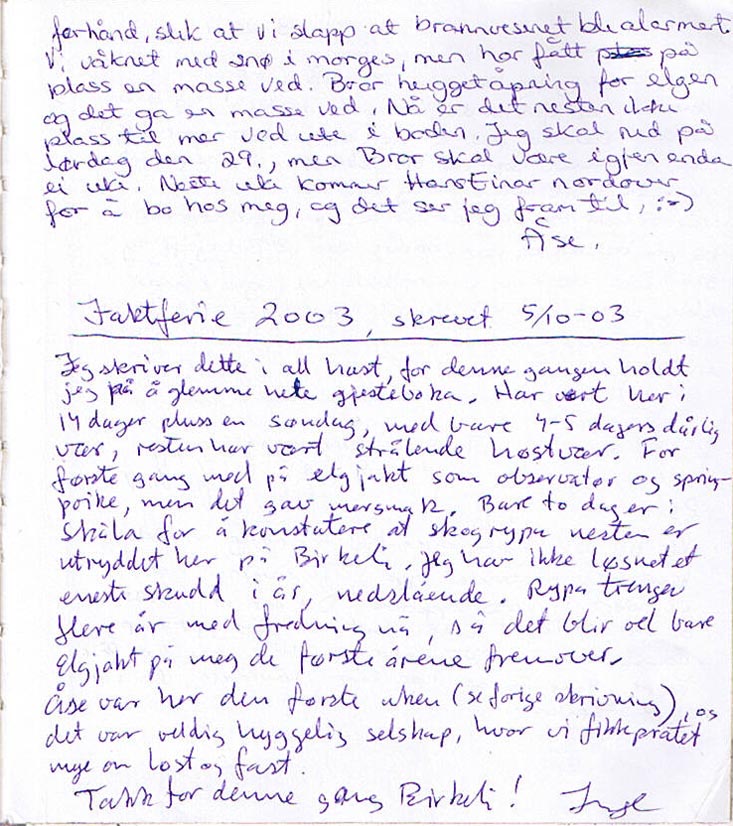 forhånd, slik at vi slapp at brannvesenet ble alarmert.
Vi våknet med snø i morges, men har fått på
plass en masse ved. Bror hugget åpning for elgen
og det ga en masse ved. Nå er det nesten ikke
plass til mer ved ute i boden. Jeg skal ned på
lørdag den 29., men Bror skal være igjen enda
ei uke. Neste uke kommer Hans Einar nordover
for å bo hos meg, og det ser jeg fram til, :-)
Åse.
Jaktferie 2003, skrevet 5/10-03
Jeg skriver dette i all hast, for denne gangen holdt
jeg på å glemme hele gjesteboka. Har vært her i
14 dager pluss en søndag, med bare 4-5 dagers dårlig
vær, resten har vært strålende høstvær. For
første gang med på elgjakt som observatør og spring-
poike, men det gav mersmak. Bare to dager i
Skåla for å konstatere at skogrypa nesten er
utryddet her på Birkeli. Jeg har ikke løsnet et
eneste skudd i år, nedslående. Rypa trenger
flere år med fredning nå, så det blir vel bare
Elgjakt på meg de første årene fremover.
Åse var her den første uken (se forige skrivning), og
det var veldig hyggelig selskap, hvor vi fikk pratet
mye om løst og fast.
Takk for denne gang Birkeli! Inge